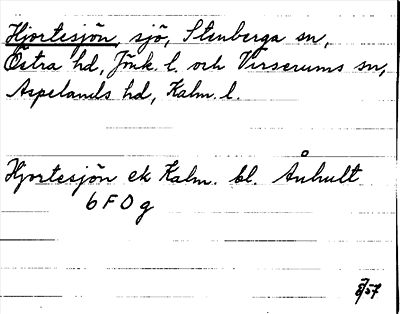 Hjortesjön, sjö, Stenberga sn,
Östra hd, Jönk. l. och Virserums sn,
Aspelands hd, Kalm. l.
Hjortesjön ek Kalm. bl. Ånhult
6 F 0 g